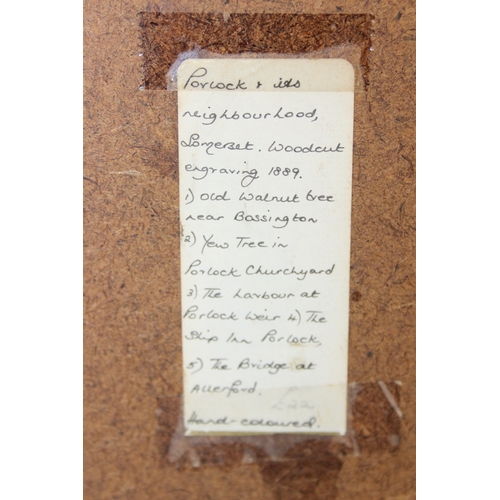 Porlock & its
neighbourhood,
Somerset. Woodcut
engraving 1889.
1) Old Walnut tree
near Bossington
2) Yew Tree in
Porlock Churchyard
3) The harbour at
Porlock Weir 4) The
Ship Inn Porlock,
5) The Bridge at
Allerford.
£22
Hand-coloured.